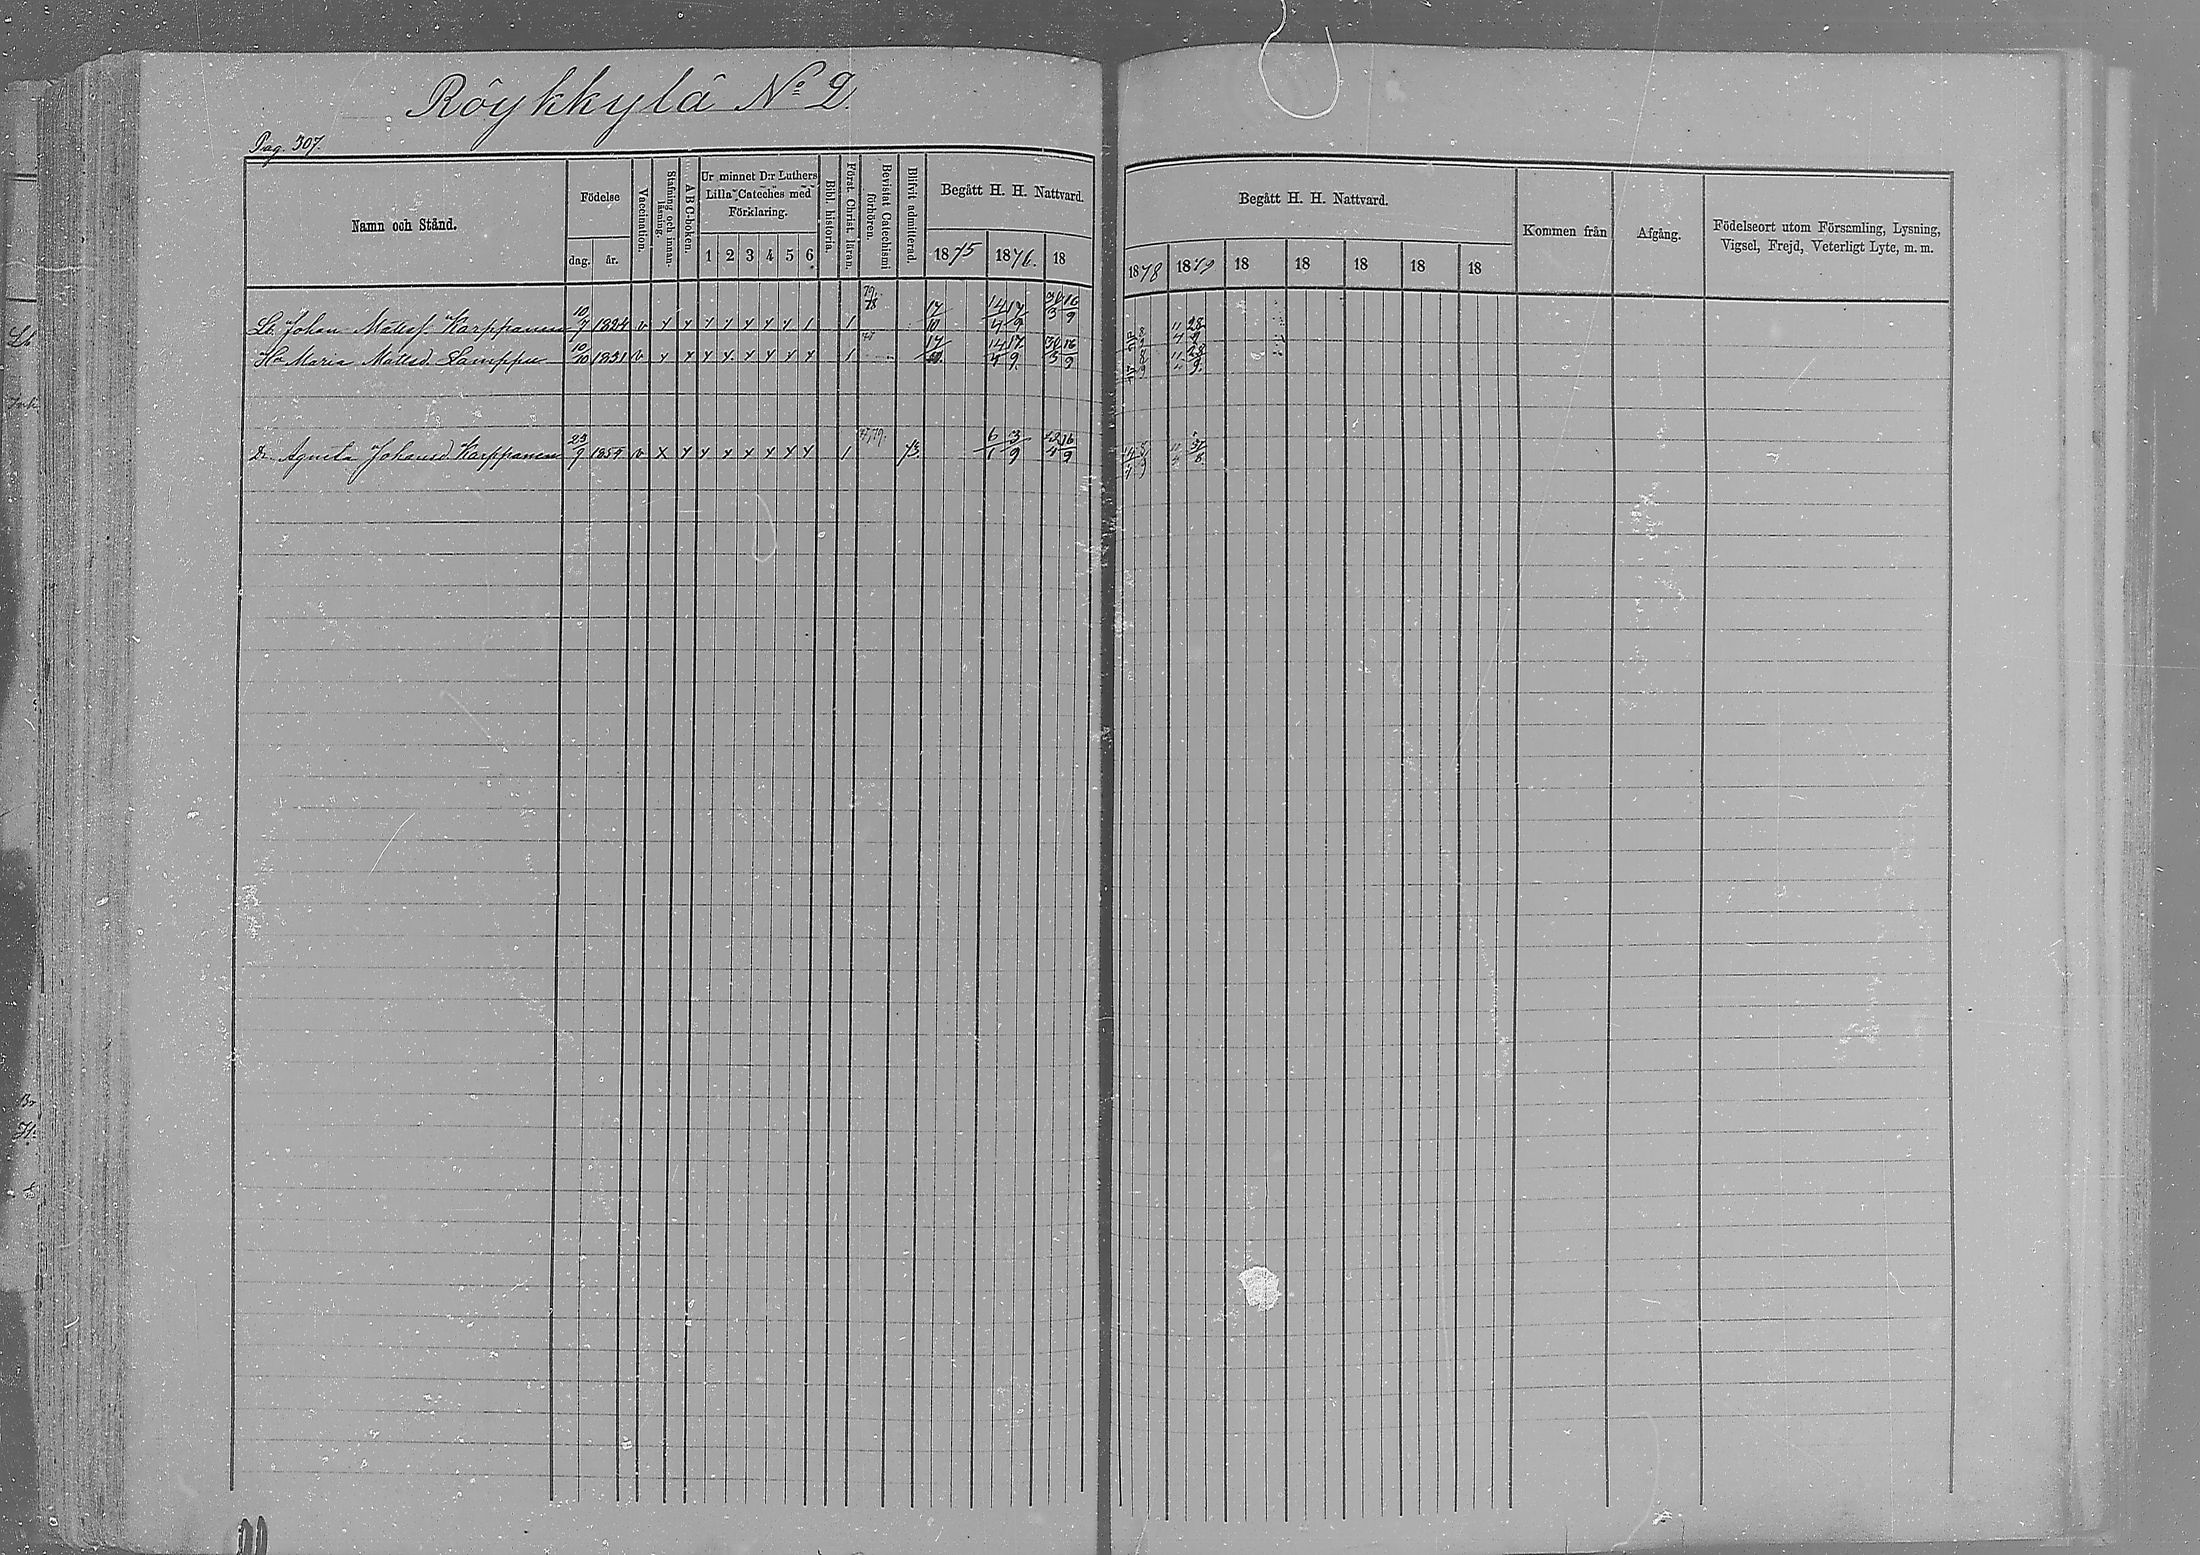 Röykkylä No 2.
Pag. 307.
Namn och Stånd.
Födelse
dag. år.
Vaccination.
Stafning och innan-läsning.
A B C-boken.
Ur minnet D:r Luthers
Lilla Cateches med
Förklaring.
1 2 3 4 5 6
Bibl. historia.
Först. Christ. läran.
Bevistat Catechismi förhören.
Blifvit admitterad
Begått H. H. Nattvard.
1875 1876. 18
Begått H. H. Nattvard.
1878 1879 18 18 18 18 18
Kommen från
Afgång.
Födelseort utom Församling, Lysning,
Vigsel, Frejd, Veterligt Lyte, m. m.
Johan Matsf Karppanen 10/7 1824 v x x x x x x x 1 1 17/10 14/4 17/9 16/9 28/9
Maria Matsd. Lamppu 10/10 1831 v x x x x x x x x 1 17/10. 14/4 17/9. 16/9 28/9.
Agneta Johansd. Karppanen 23/9 v x x x x x x x x 1 6/1 3/9 16/9 31/8.